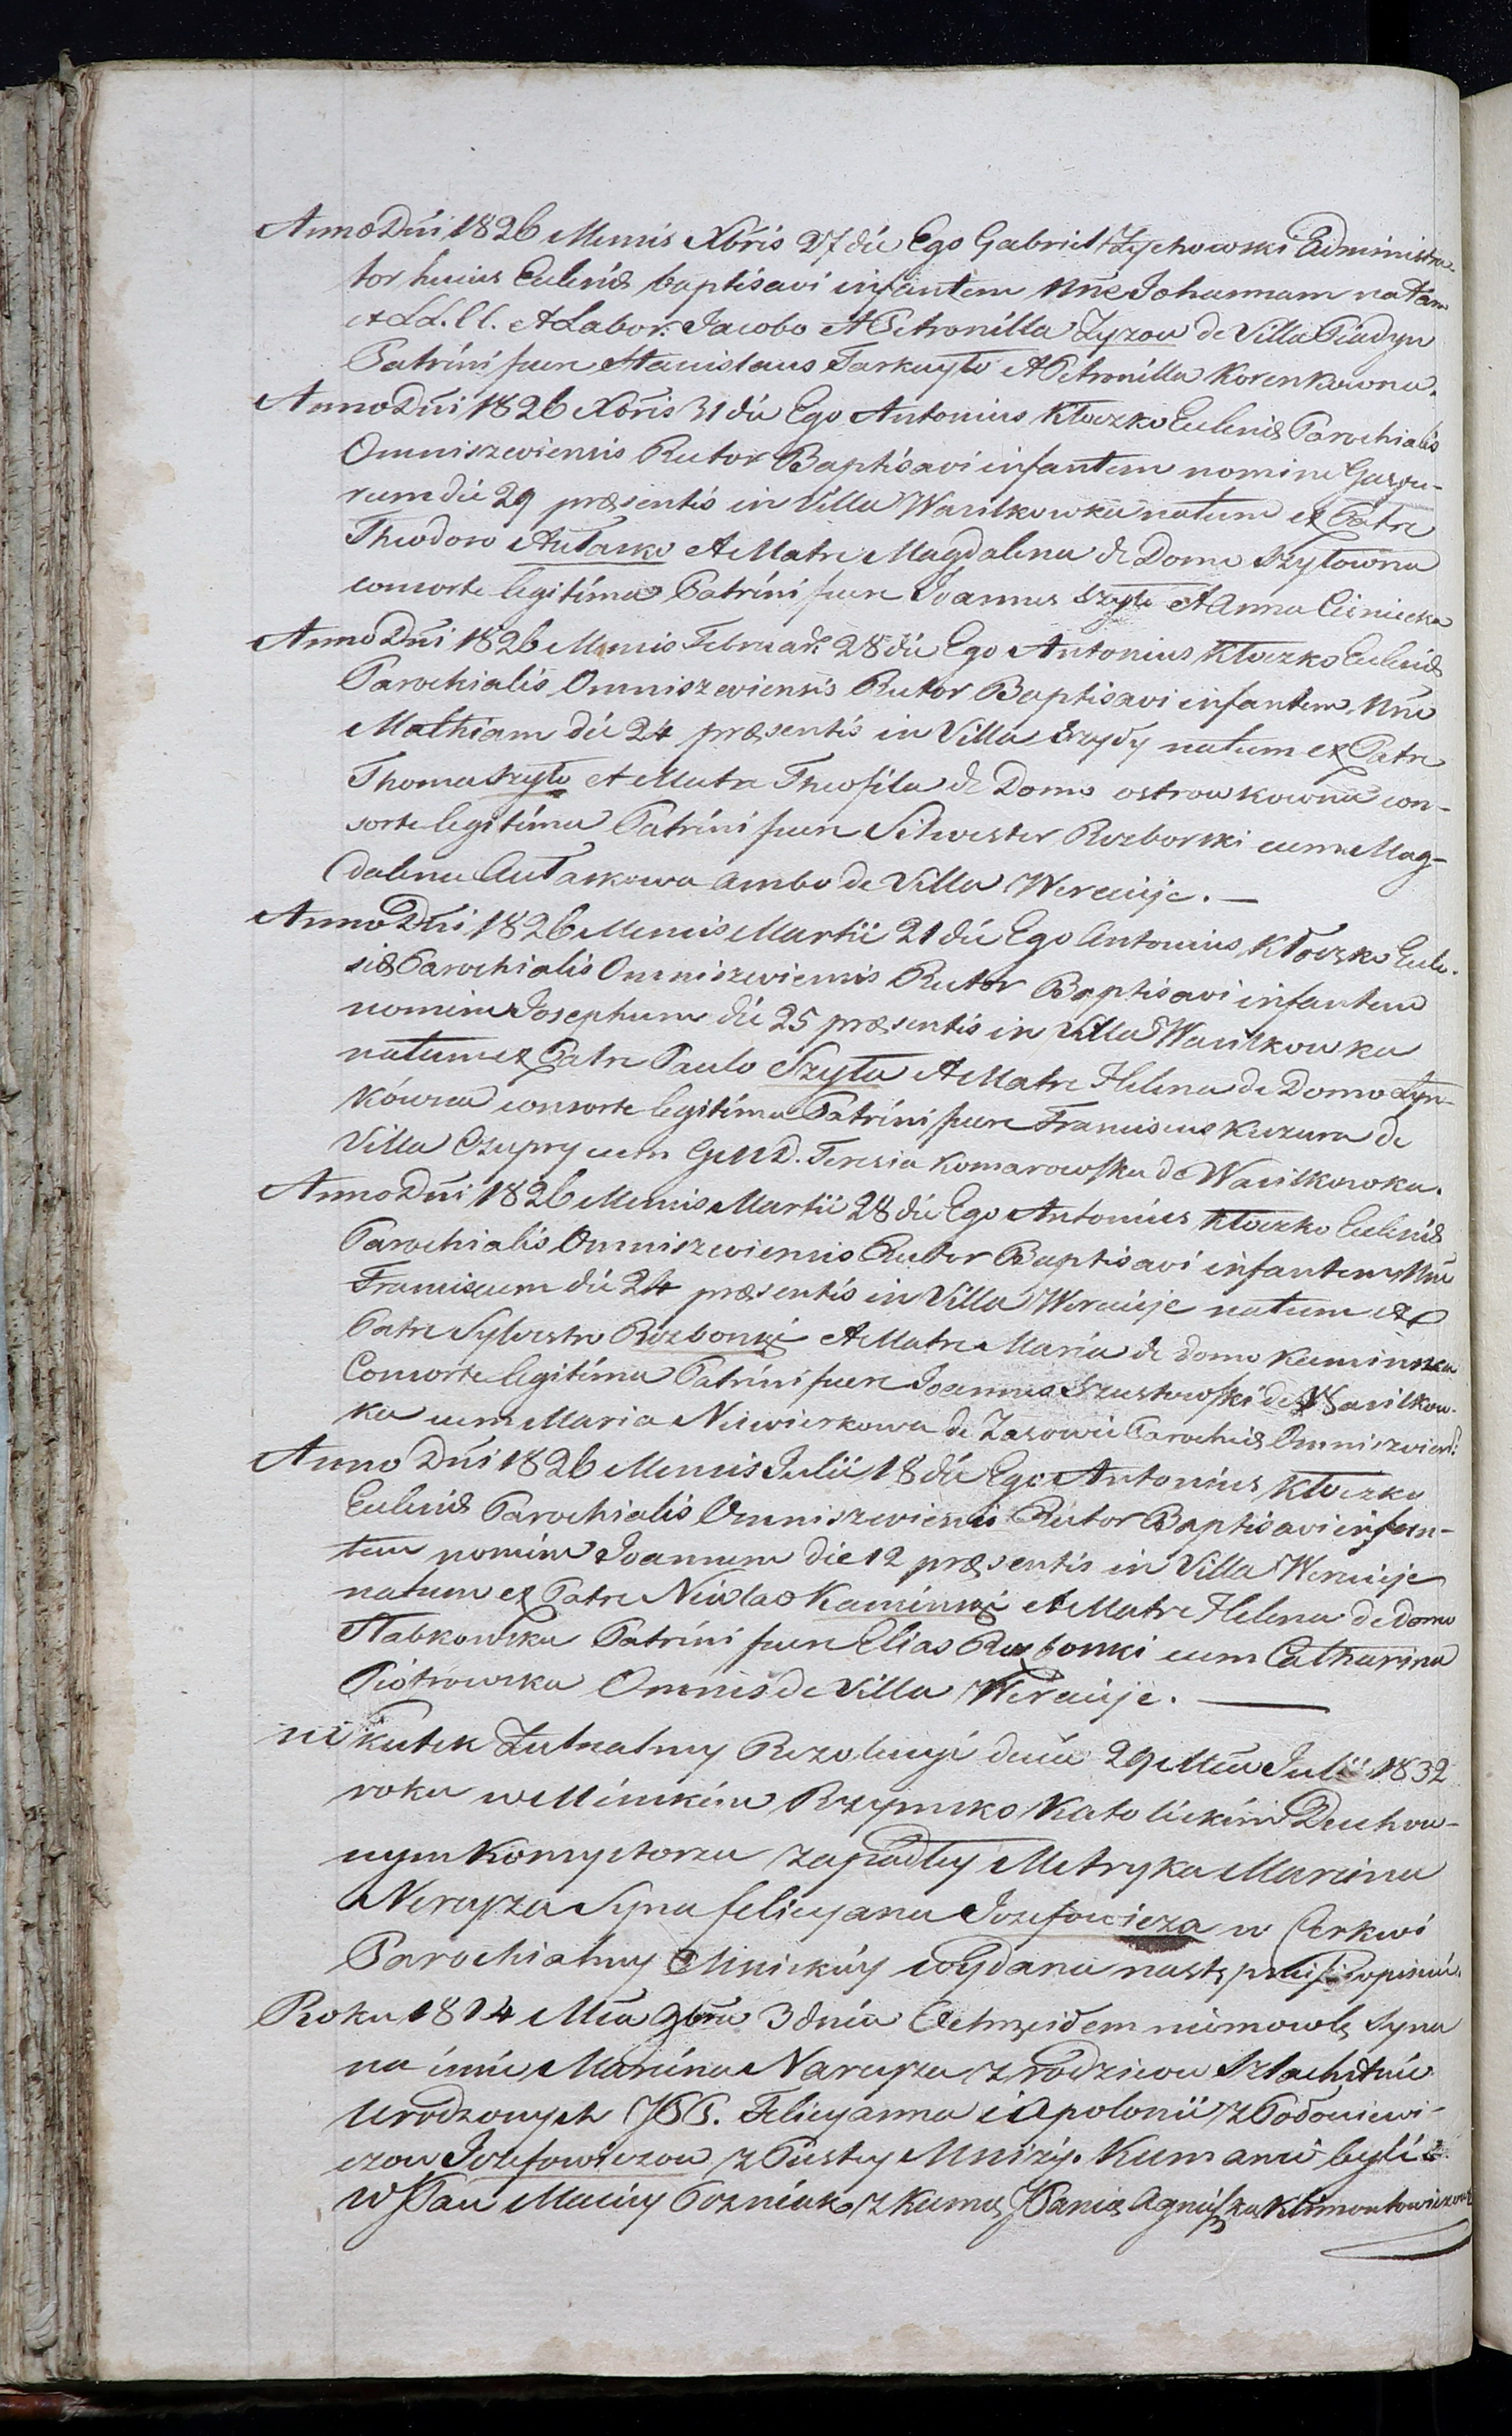 Anno Dñi 1826 Mensis Xbris 27 die Ego Gabriel Zychowski Administra-
tor hujus Eclesiæ baptisavi infantem Nne Johannam natam
ex LL. CC. et Labor: Jacobo et Petronilla Zyzow de Villa Piadyn
Patrini fuere Stanislaus Tarkuyło et Petronilla Korenkowna.
Anno Dñi 1826 Xbris 31 die Ego Antonius Kłoczko Eclesiæ Parochialis
Omniszewiensis Rector Baptisavi infantem nomine Gaspa-
rum die 29 præsentis in Villa Wasilkowka natum ex Patre
Theodoro Autasko et Matre Magdalena de Domo Szyłowna
consorte legitima Patrini fuere Joannes Szyło et Anna Cisniecka
Anno Dñi 1826 Mensis Februar: 28 die Ego Antonius Kłoczko Eclesiæ
Parochialis Omniszewiensis Rector Baptisavi infantem Nne
Mathiam die 24 præsentis in Villa natum ex Patre
Thoma Szyło et Matre Theofila de Domo ostrowkowna con-
sorte legitima Patrini fuere Silwester Rozborski cum Mag-
dalena Autaskowa ambo de Villa Weraije. —
Anno Dñi 1826 Mensis Martii 21 die Ego Antonius Kłoczko Ecle-
siæ Parochialis Omniszewiensis Rector Baptisavi infantem
nomine Josephum die 25 præsentis in Villa Wasilkowka
natum ex Patre Paulo Szyła et Matre Helena de Domo Łyn-
kówna consorte legitima Patrini fuere Franciscus Kuzura de
Villa Czupry cum GMD. Teresia Komarowska de Wasilkowka.
Anno Dñi 1826 Mensis Martii 28 die Ego Antonius Kłoczko Eclesiæ
Parochialis Omniszewiensis Rector Baptisavi infantem Nne
Franciscum die 24 præsentis in Villa Weraije natum ex
Patre Sylvestro Rozbonski et Matre Maria de domo Kaminska
Consorte legitima Patrini fuere Joannes Szustowski de Wasilkow-
ka cum Maria Niewierkowa de Zasowie Parochiæ Omniszwiens:
Anno Dñi 1826 Mensis Julii 18 die Ego Antonius Kłoczko
Eclesiæ Parochialis Omniszewiensis Rector Baptisavi infan-
tem nomine Joannem die 12 præsentis in Villa Weraije
natum ex Patre Nicolao Kaminski et Matre Helena de domo
Słabkowska Patrini fuere Elias Rozbonski cum Catharina
Piotrowska Omnes de Villa Weraije. —
kutek Rezolucyi dnia 29 Mca Julii 1832
roku w Minskim Rzymsko Katolickim Duchow-
nym Konsystorzu zapadłey Metryka Marcina
Narcyza Syna Felicyana Jozefowicza w Cerkwi
Parochialney wydana następnie
Roku 1814 Mca 9bra 3 dnia Ochrzciłem niemowlę Syna
na imie Marcina Narcyza z rodzicow Szlachetnie
Urodzonych JPP. Felicyanna i Apolonii z
czow Jozefowiczow z Pustey Mniży. Kumami byli
W JPan Maciey Pozniak z Kumą JPanią Agnieszką Klimontowiczową